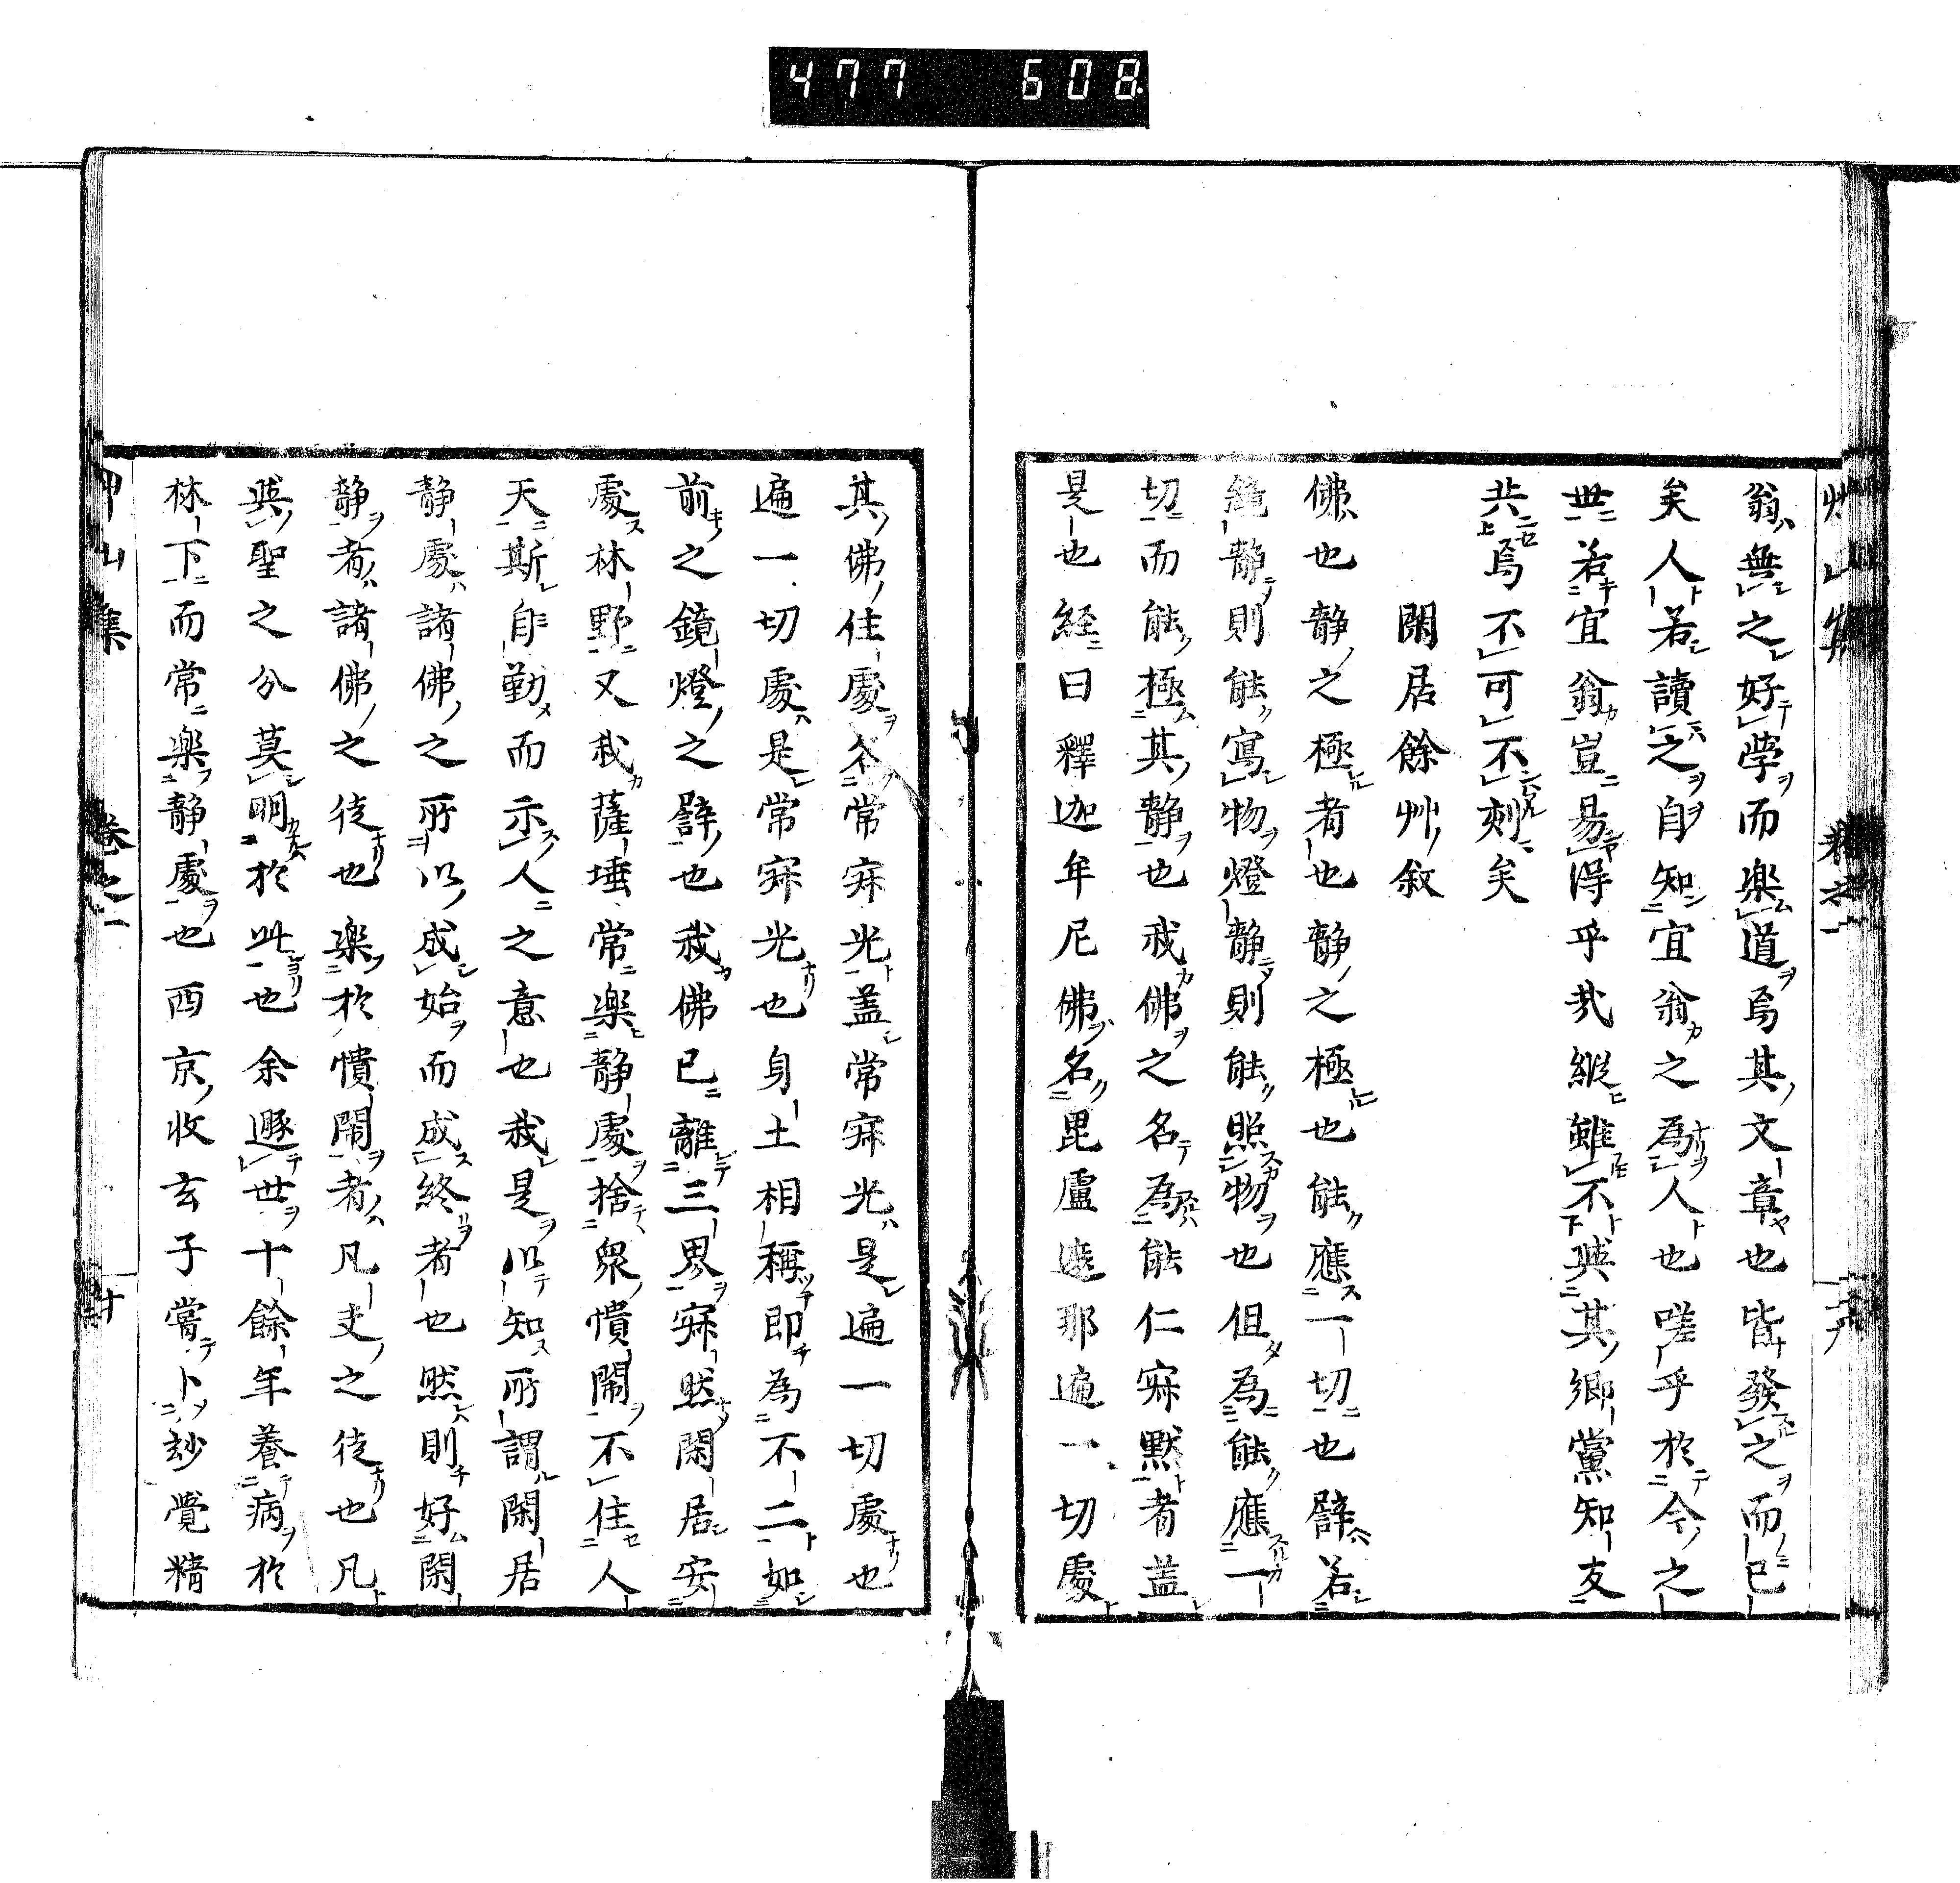 477 608
翁無之好学而楽道焉其文章也皆發之而已
矣人若讀之自知宜翁之為人也嗟乎於今之
世若宜翁豈易得乎哉縱雖不與其鄉黨知友
共焉不可不刻矣
閑居餘艸叙
佛也静之極者也静之極也能應一切也譬若
鏡静則能寫物燈静則能照物也但為能應一
切而能極其静也我佛之名為能仁寂默者盖
是也経曰釋迦牟尼佛名毘盧遮那遍一切處
其佛住處名常寂光盖常寂光是遍一切處也
遍一切處是常寂光也身土相稱即為不二如
前之鏡燈之譬也我佛已離三界寂然閑居安
處林野又我薩埵常楽静處捨衆憒閙不住人
天斯自勤而示人之意也我是以知所謂閑居
静處諸佛之所以成始而成終者也然則好閑
静者諸佛之徒也楽於憒閙者凡夫之徒也凡
與聖之分莫明於此也余遯世十餘年養病於
林下而常楽静處也西京收玄子嘗卜妙覺精
艸山集 卷之一 廿